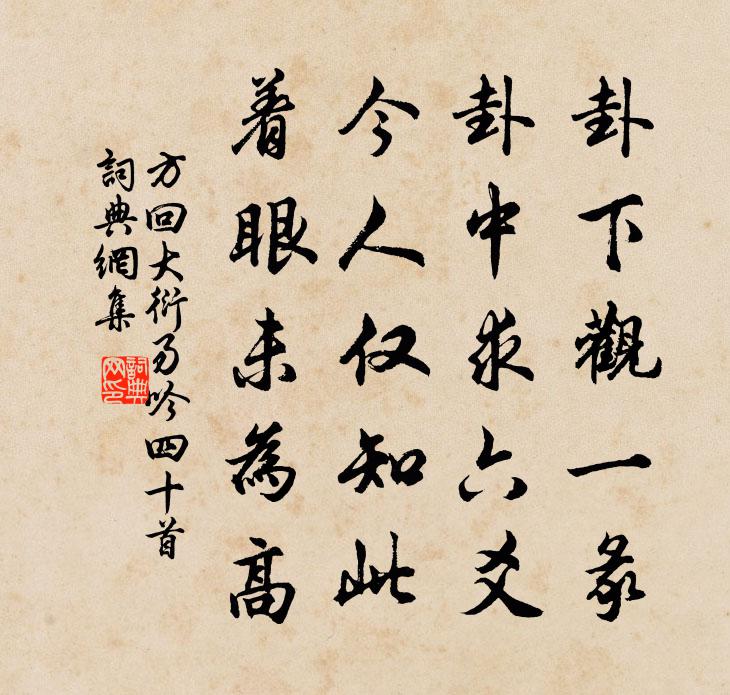 卦下觀一彖
卦中求六爻
今人仅知此
着眼未為高
方回大衍易吟四十首
詞典網集
詞典网印